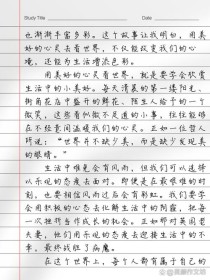 Study Title :
Date :
也渐渐丰富多彩。这个故事让我明白，用美
好的心灵去看世界，不仅能改变我们的心
境，还能为生活增添色彩。
用美好的心灵看世界，就是要学会欣赏
生活中的小美好。每天清晨的第一缕阳光、
街角花店中盛开的鲜花、陌生人给予的一个
微笑，这些看似微不足道的小事，往往能够
在不经意间温暖我们的心灵。正如一位哲人
所说：“世界并不缺少美，而是缺少发现美
的眼睛。”
生活中难免会有风雨，但我们可以选择
以乐观的态度去面对。即便是在最艰难的时
刻，也要相信风雨过后会有彩虹。我们要学
会用积极的心态去化解生活中的阴霾，把每
一次挫折当作成长的机会。正如那对美国老
夫妻，他们用乐观的态度去迎接生活中的不
幸，最终战胜了病魔。
在这个世界上，每个人都有属于自己的